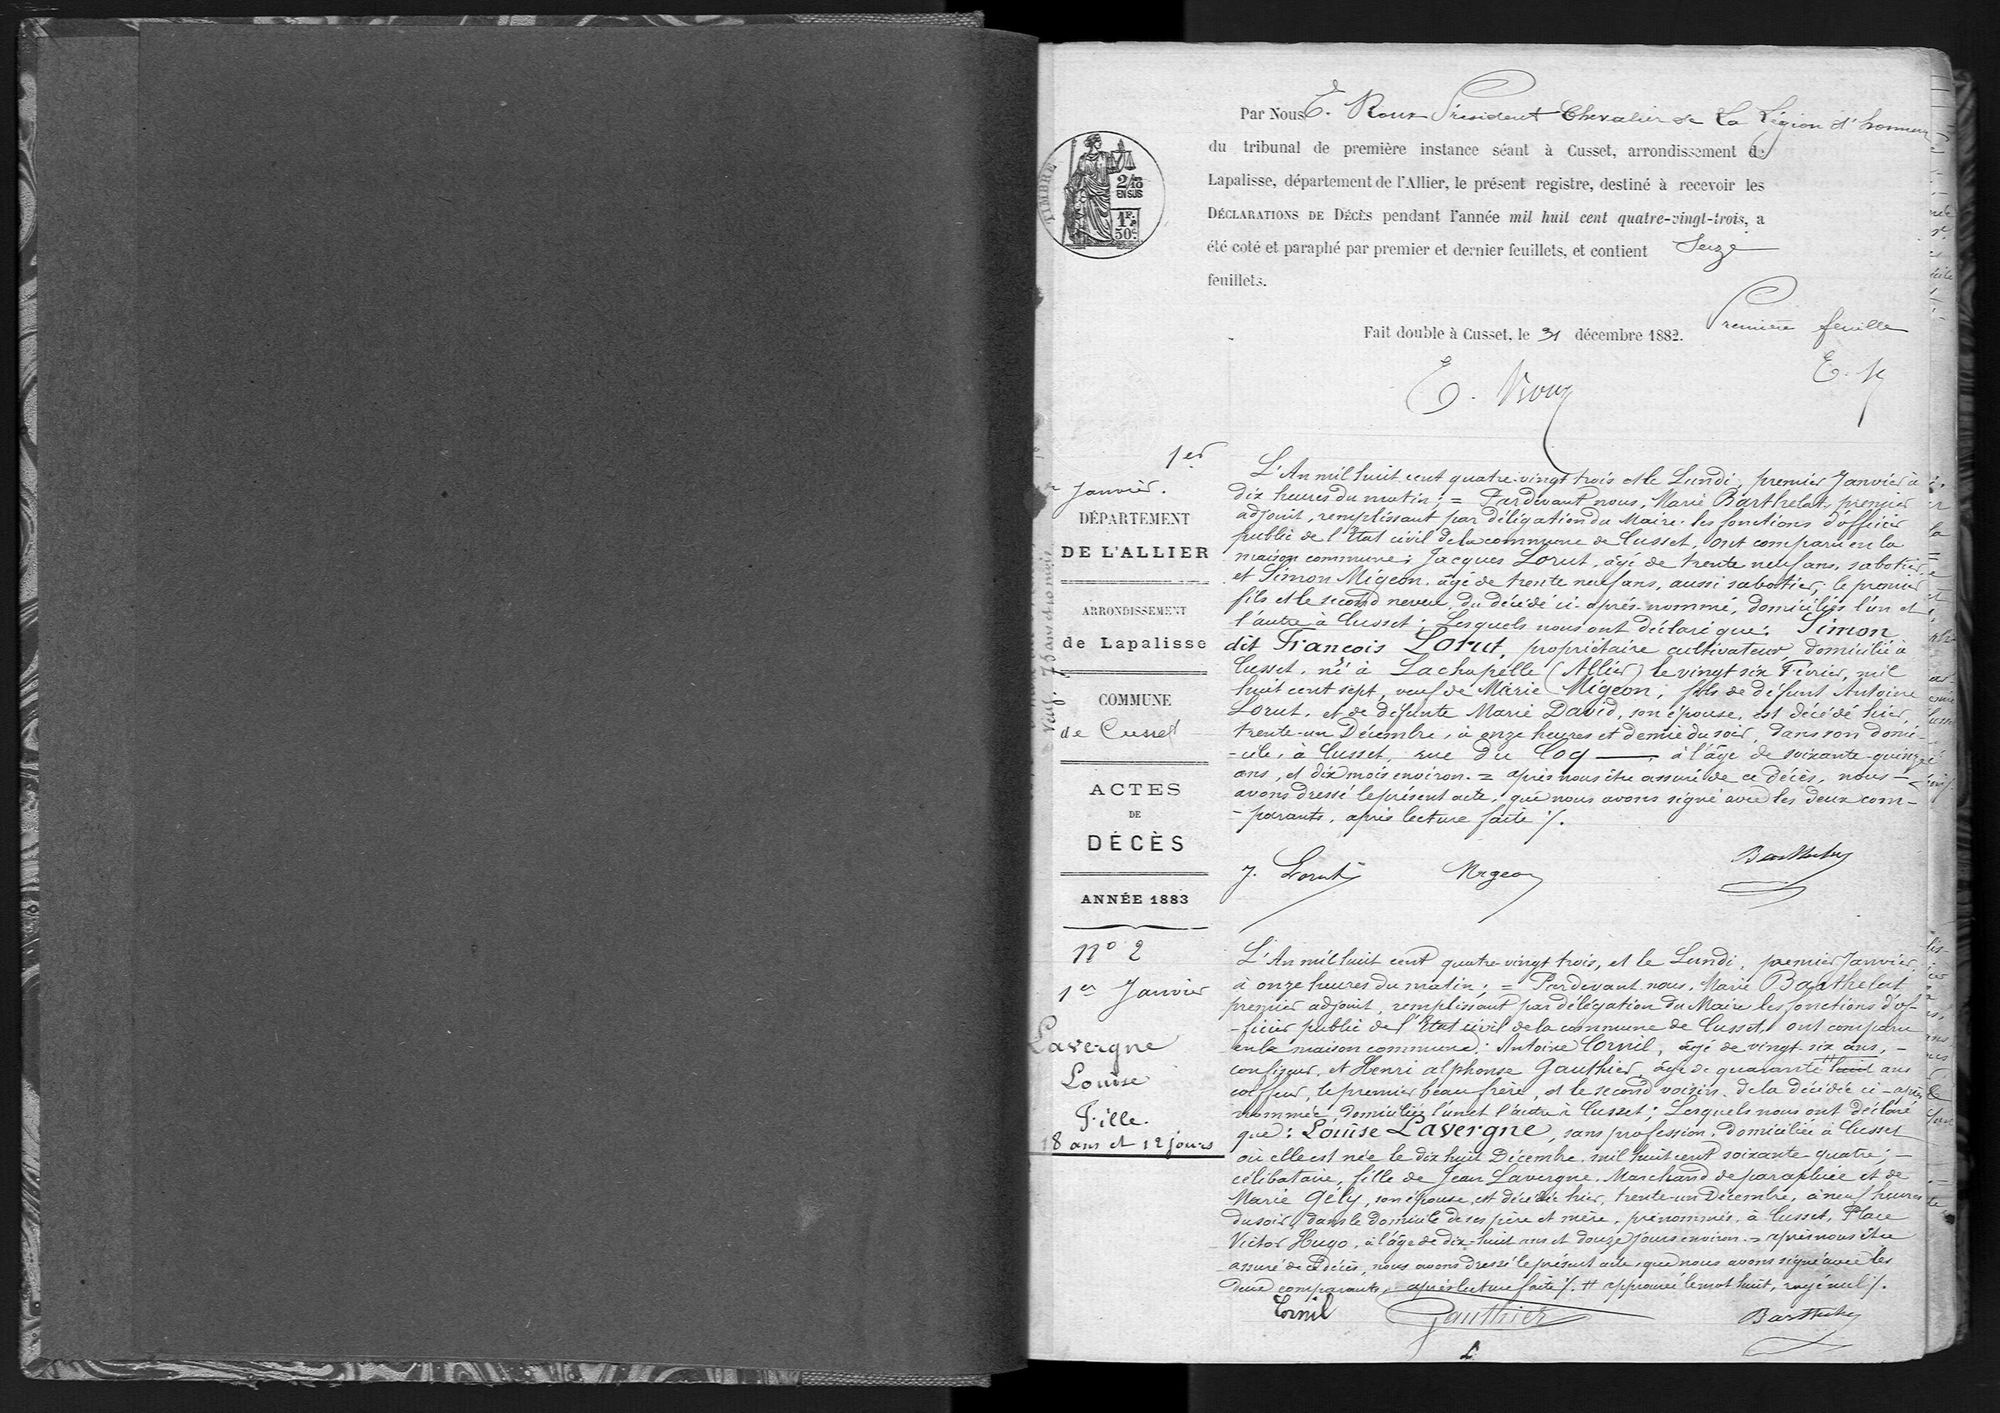 Par Nous E. Roux Président Chevalier de La Légion d'honneur
du tribunal de première instance séant à Cusset, arrondissement de
Lapalisse, département de l'Allier, le présent registre, destiné à recevoir les
DÉCLARATIONS DE DÉCÈS pendant l'année mil huit cent quatre-vingt-trois, a
été coté et paraphé par premier et dernier feuillets, et contient Seize
feuillets.
TIMBRE
2/10
EN SUS
1F.
50c.
Fait double à Cusset, le 31 décembre 1882.
Première feuille
E. Roux
E. R
1er
Janvier.
DÉPARTEMENT
DE L'ALLIER
ARRONDISSEMENT
de Lapalisse
COMMUNE
de Cusset
ACTES
DE
DÉCÈS
ANNÉE 1883
Veuf. 75 ans et 10 mois
L'An mil huit cent quatre-vingt trois et le Lundi, premier Janvier à
dix heures du matin; = Pardevant nous, Marie Barthelat, premier
adjoint, remplissant par délégation du Maire les fonctions d'officier
public de l'Etat civil de la commune de Cusset, ont comparu en la
maison commune: Jacques Lorut, âgé de trente neuf ans, sabotier
et Simon Migeon, âgé de trente neuf ans, aussi sabotier, le premier
fils et le second neveu, du décédé ci-après nommé, domiciliés l'un et
l'autre à Cusset; Lesquels nous ont déclaré que: Simon
dit François Lorut, propriétaire cultivateur, domicilié à
Cusset, né à Lachapelle (Allier) le vingt six Février, mil
huit cent sept, veuf de Marie Migeon, fils de défunt Antoine
Lorut, et de défunte Marie David, son épouse, est décédé hier,
trente-un Décembre, à onze heures et demie du soir, dans son domi-
-cile, à Cusset, rue du Coq — à l'âge de soixante-quinze
ans, et dix mois environ. = après nous être assuré de ce décès, nous -
avons dressé le présent acte, que nous avons signé avec les deux com-
-parants, après lecture faite /.
J. Lorut Migeon Barthelat
No 2
1er Janvier
Lavergne
Louise
Fille.
18 ans et 12 jours
L'An mil huit cent quatre-vingt trois, et le Lundi, premier Janvier,
à onze heures du matin; = Pardevant nous, Marie Barthelat
premier adjoint, remplissant par délégation du Maire les fonctions d'of-
-ficier public de l'Etat civil de la commune de Cusset, ont comparu
en la maison commune: Antoine Cornil, âgé de vingt six ans, -
confiseur, et Henri alphonse Gauthier, âgé de quarante huit ans
coiffeur, le premier beau frère, et le second voisin, de la décédée ci-après
nommée, domiciliés l'un et l'autre à Cusset; Lesquels nous ont déclaré
que: Louise Lavergne, sans profession, domiciliée à Cusset
où elle est née le dix huit Décembre mil huit cent soixante quatre; -
célibataire, fille de Jean Lavergne, Marchand de parapluie et de
Marie Gély, son épouse, est décédée hier, trente-un Décembre, à neuf heures
du soir, dans le domicile de ses père et mère, prénommés, à Cusset, Place
Victor Hugo, à l'âge de dix-huit ans et douze jours environ. = après nous être
assuré de ce décès, nous avons dressé le présent acte, que nous avons signé avec les
deux comparants, après lecture faite /. # approuvé le mot huit, rayé nul /.
Cornil Gauthier Barthelat